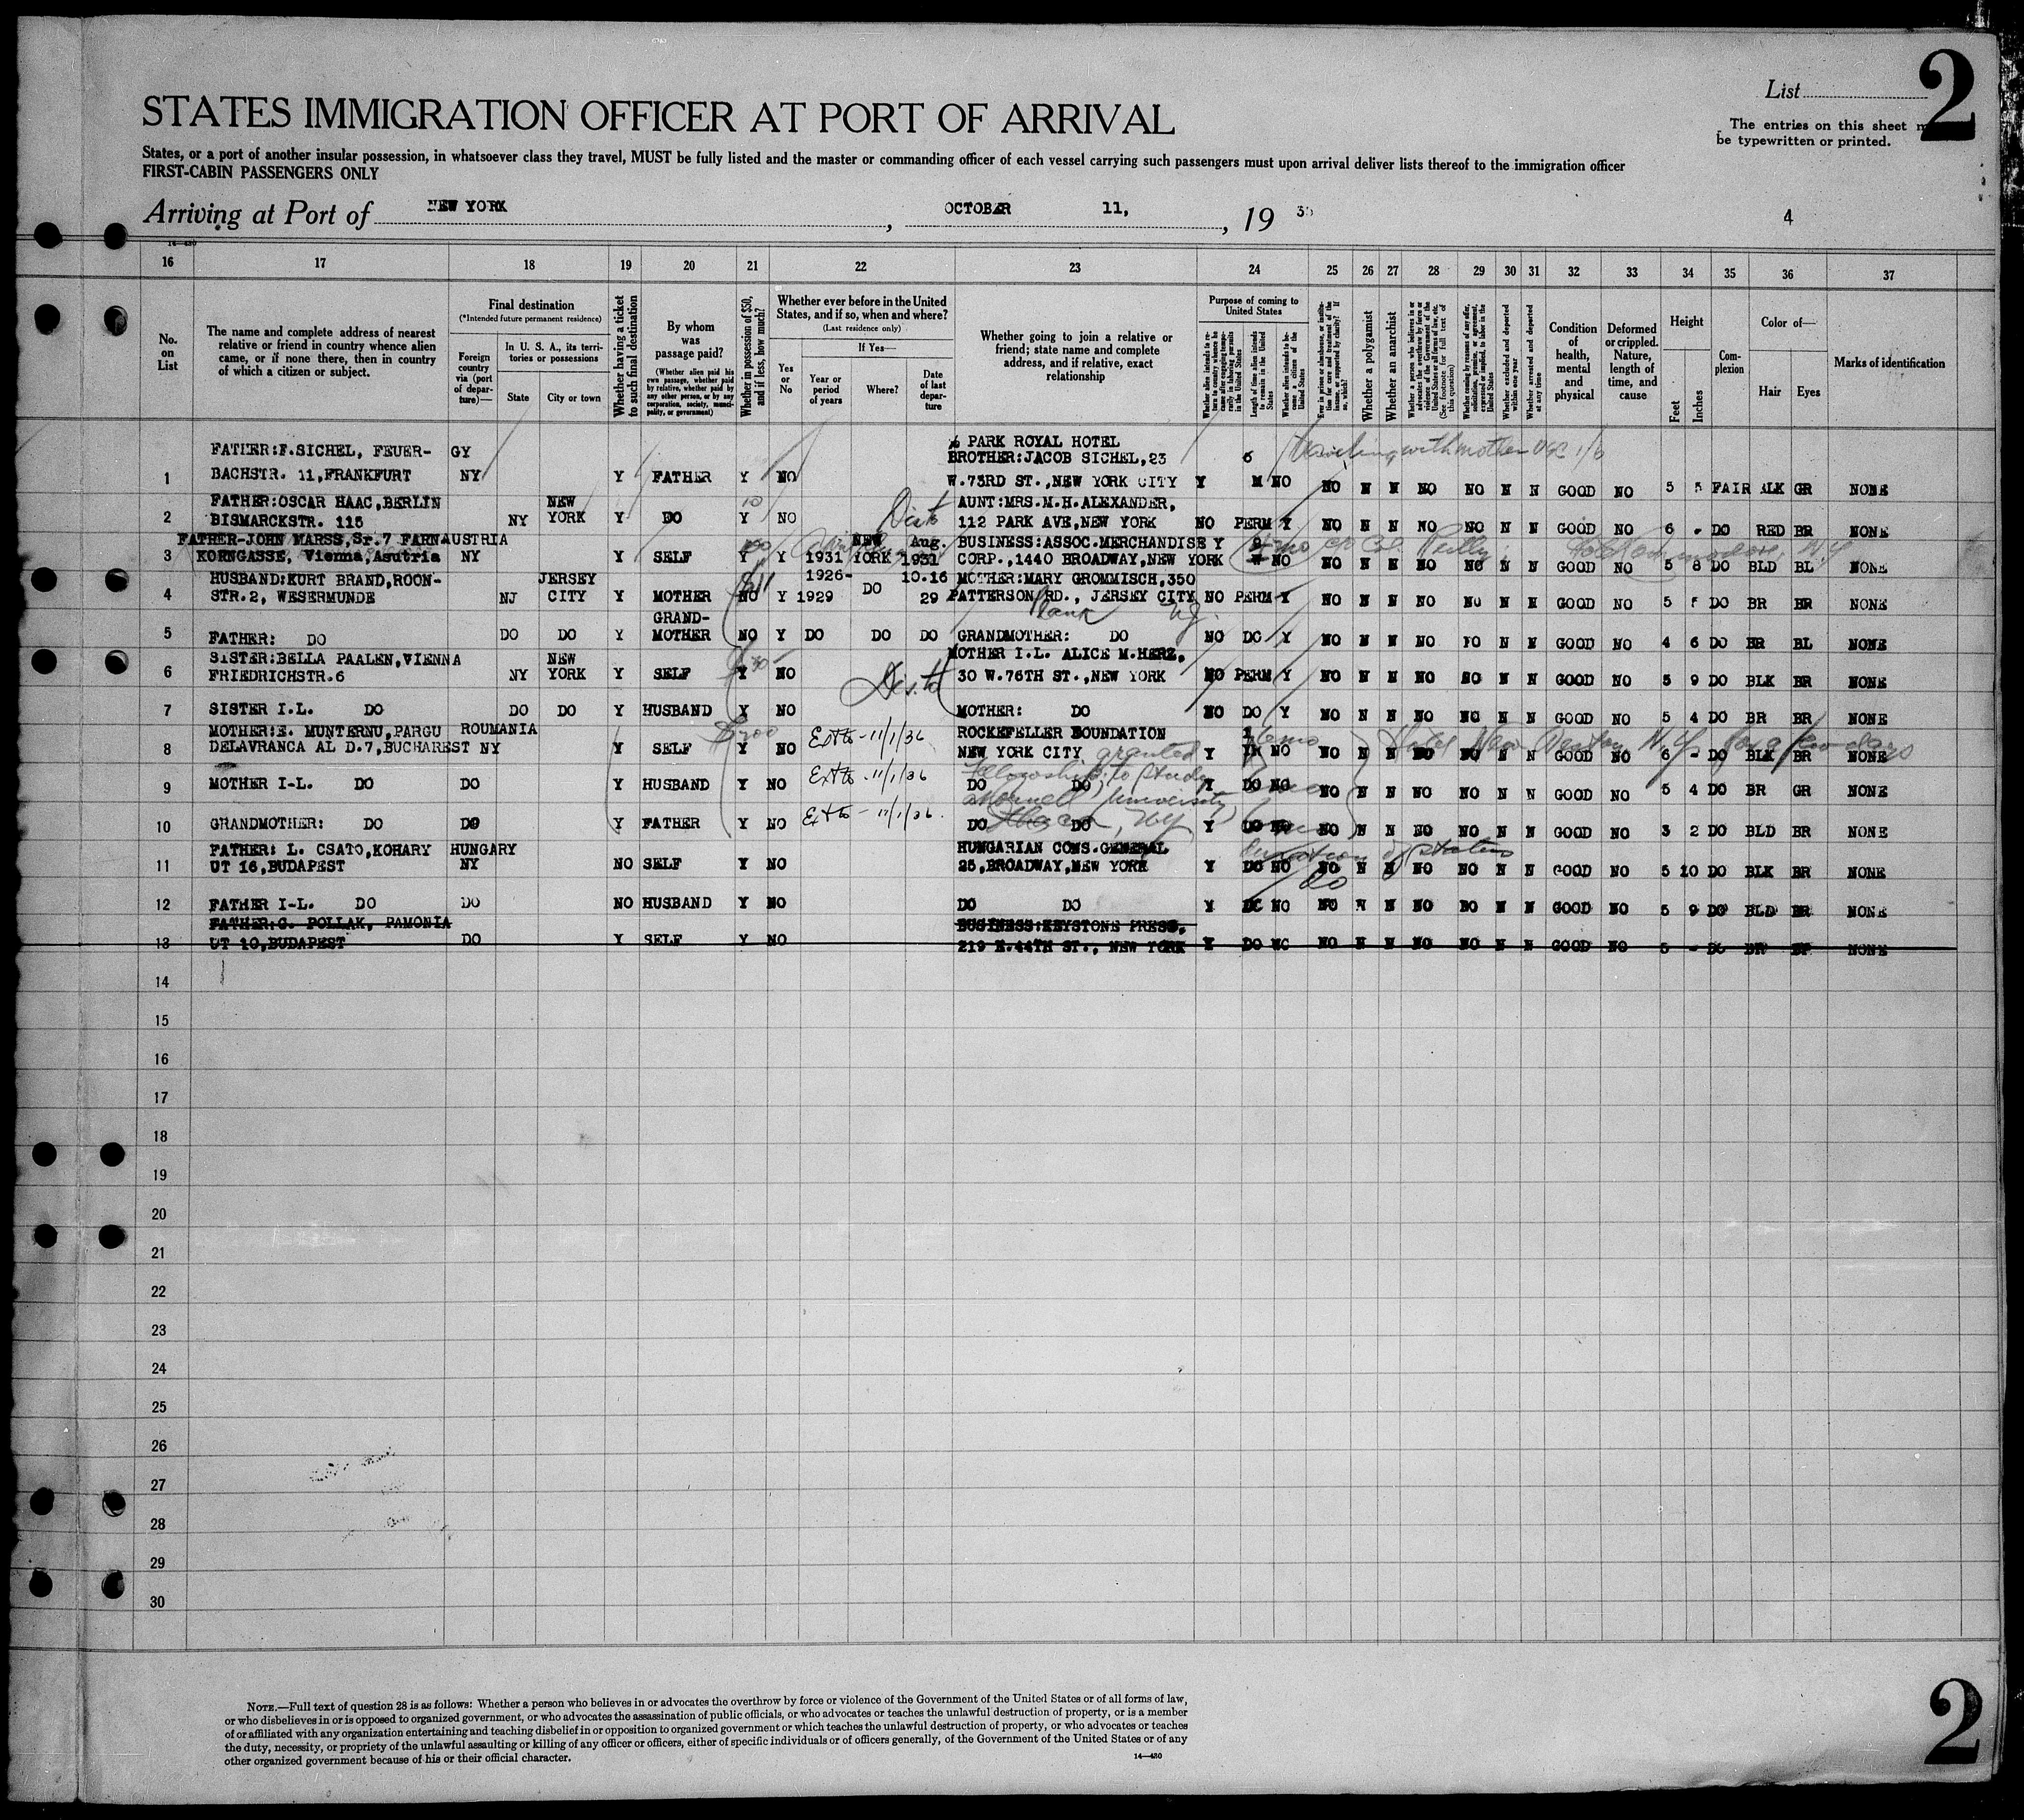 2
List
STATES IMMIGRATION OFFICER AT PORT OF ARRIVAL
The entries on this sheet
be typewritten or printed.
States, or a port of another insular possession, in whatsoever class they travel, MUST be fully listed and the master or commanding officer of each vessel carrying such passengers must upon arrival deliver lists thereof to the immigration officer
FIRST-CABIN PASSENGERS ONLY
Arriving at Port of NEW YORK, OCTOBER 11, 19
4
14—430
16 17 18 19 20 21 22 23 24 25 26 27 28 29 30 31 32 33 34 35 36 37
No. on List
The name and complete address of nearest relative or friend in country whence alien came, or if none there, then in country of which a citizen or subject.
Final destination
(*Intended future permanent residence)
Foreign country via (port of departure)—
In U. S. A., its territories or possessions
State City or town
Whether having a ticket to such final destination
By whom was passage paid?
(Whether alien paid his own passage, whether paid by relative, whether paid by any other person, or by any corporation, society, municipality, or government)
Whether in possession of $50, and if less, how much?
Whether ever before in the United States, and if so, when and where?
(Last residence only)
If Yes—
Yes or No
Year or period of years
Where?
Date of last departure
Whether going to join a relative or friend; state name and complete address, and if relative, exact relationship
Purpose of coming to United States
Length of time alien intends to remain in the United States
Whether alien intends to become a citizen of the United States
Whether a polygamist
Whether an anarchist
Whether excluded and deported within one year
Whether arrested and deported at any time
Condition of health, mental and physical
Deformed or crippled. Nature, length of time, and cause
Height
Feet Inches
Complexion
Color of—
Hair Eyes
Marks of identification
FATHER:F.SICHEL, FEUER- GY % PARK ROYAL HOTEL
BROTHER:JACOB SICHEL,23 6
1 BACHSTR. 11,FRANKFURT NY Y FATHER Y NO W.73RD ST.,NEW YORK CITY Y M NO NO N N NO NO N N GOOD NO 5 5 FAIR BLK GR NONE
FATHER:OSCAR HAAC,BERLIN NEW 10 AUNT:MRS.M.H.ALEXANDER,
2 BISMARCKSTR. 115 NY YORK Y DO Y NO 112 PARK AVE,NEW YORK NO PERM Y NO N N NO NO N N GOOD NO 6 - DO RED BR NONE
FATHER-JOHN MARSS,Sr.7 FARN AUSTRIA NEW Aug. BUSINESS:ASSOC.MERCHANDISE Y
3 KORNGASSE, Vienna,Asutria NY Y SELF Y Y 1931 YORK 1931 CORP.,1440 BROADWAY,NEW YORK NO NO N N NO NO N N GOOD NO 5 8 DO BLD BL NONE
HUSBAND:KURT BRAND,ROON- JERSEY 1926- 10.16 MOTHER:MARY GROMMISCH,350
4 STR.2, WESERMUNDE NJ CITY Y MOTHER NO Y 1929 DO 29 PATTERSON RD., JERSEY CITY NO PERM Y NO N N NO NO N N GOOD NO 5 5 DO BR BR NONE
GRAND-
5 FATHER: DO DO DO Y MOTHER NO Y DO DO DO GRANDMOTHER: DO NO DO Y NO N N NO NO N N GOOD NO 4 6 DO BR BL NONE
SISTER:BELLA PAALEN,VIENNA NEW MOTHER I.L. ALICE M.HERZ,
6 FRIEDRICHSTR.6 NY YORK Y SELF Y NO 30 W.76TH ST.,NEW YORK NO PERM Y NO N N NO NO N N GOOD NO 5 9 DO BLK BR NONE
7 SISTER I.L. DO DO DO Y HUSBAND Y NO MOTHER: DO NO DO Y NO N N NO NO N N GOOD NO 5 4 DO BR BR NONE
MOTHER:E. MUNTERNU,PARGU ROUMANIA Ext to - 11/1/36 ROCKEFELLER FOUNDATION 1
8 DELAVRANCA AL D.7,BUCHAREST NY Y SELF Y NO NEW YORK CITY granted Y NO NO N N NO NO N N GOOD NO 6 - DO BLK BR NONE
Ext to - 11/1/36 fellowship to study
9 MOTHER I-L. DO DO Y HUSBAND Y NO DO DO Y DO NO NO N N NO NO N N GOOD NO 5 4 DO BR GR NONE
Ext to - 11/1/36. University
10 GRANDMOTHER: DO DO Y FATHER Y NO DO DO Y DO NO NO N N NO NO N N GOOD NO 3 2 DO BLD BR NONE
FATHER: L. CSATO,KOHARY HUNGARY HUNGARIAN CONS.GENERAL
11 UT 16,BUDAPEST NY NO SELF Y NO 25,BROADWAY,NEW YORK Y DO NO NO N N NO NO N N GOOD NO 5 10 DO BLK BR NONE
12 FATHER I-L. DO DO NO HUSBAND Y NO DO DO Y DO NO NO N N NO NO N N GOOD NO 5 9 DO BLD BR NONE
FATHER:G. POLLAK, PAMONIA BUSINESS:KEYSTONE PRESS,
13 UT 10,BUDAPEST DO Y SELF Y NO 219 E.44TH ST., NEW YORK Y DO NO NO N N NO NO N N GOOD NO 5 - DO BR BR NONE
14
15
16
17
18
19
20
21
22
23
24
25
26
27
28
29
30
NOTE.—Full text of question 28 is as follows: Whether a person who believes in or advocates the overthrow by force or violence of the Government of the United States or of all forms of law,
or who disbelieves in or is opposed to organized government, or who advocates the assassination of public officials, or who advocates or teaches the unlawful destruction of property, or is a member
of or affiliated with any organization entertaining and teaching disbelief in or opposition to organized government or which teaches the unlawful destruction of property, or who advocates or teaches
the duty, necessity, or propriety of the unlawful assaulting or killing of any officer or officers, either of specific individuals or of officers generally, of the Government of the United States or of any
other organized government because of his or their official character.
14—430
2